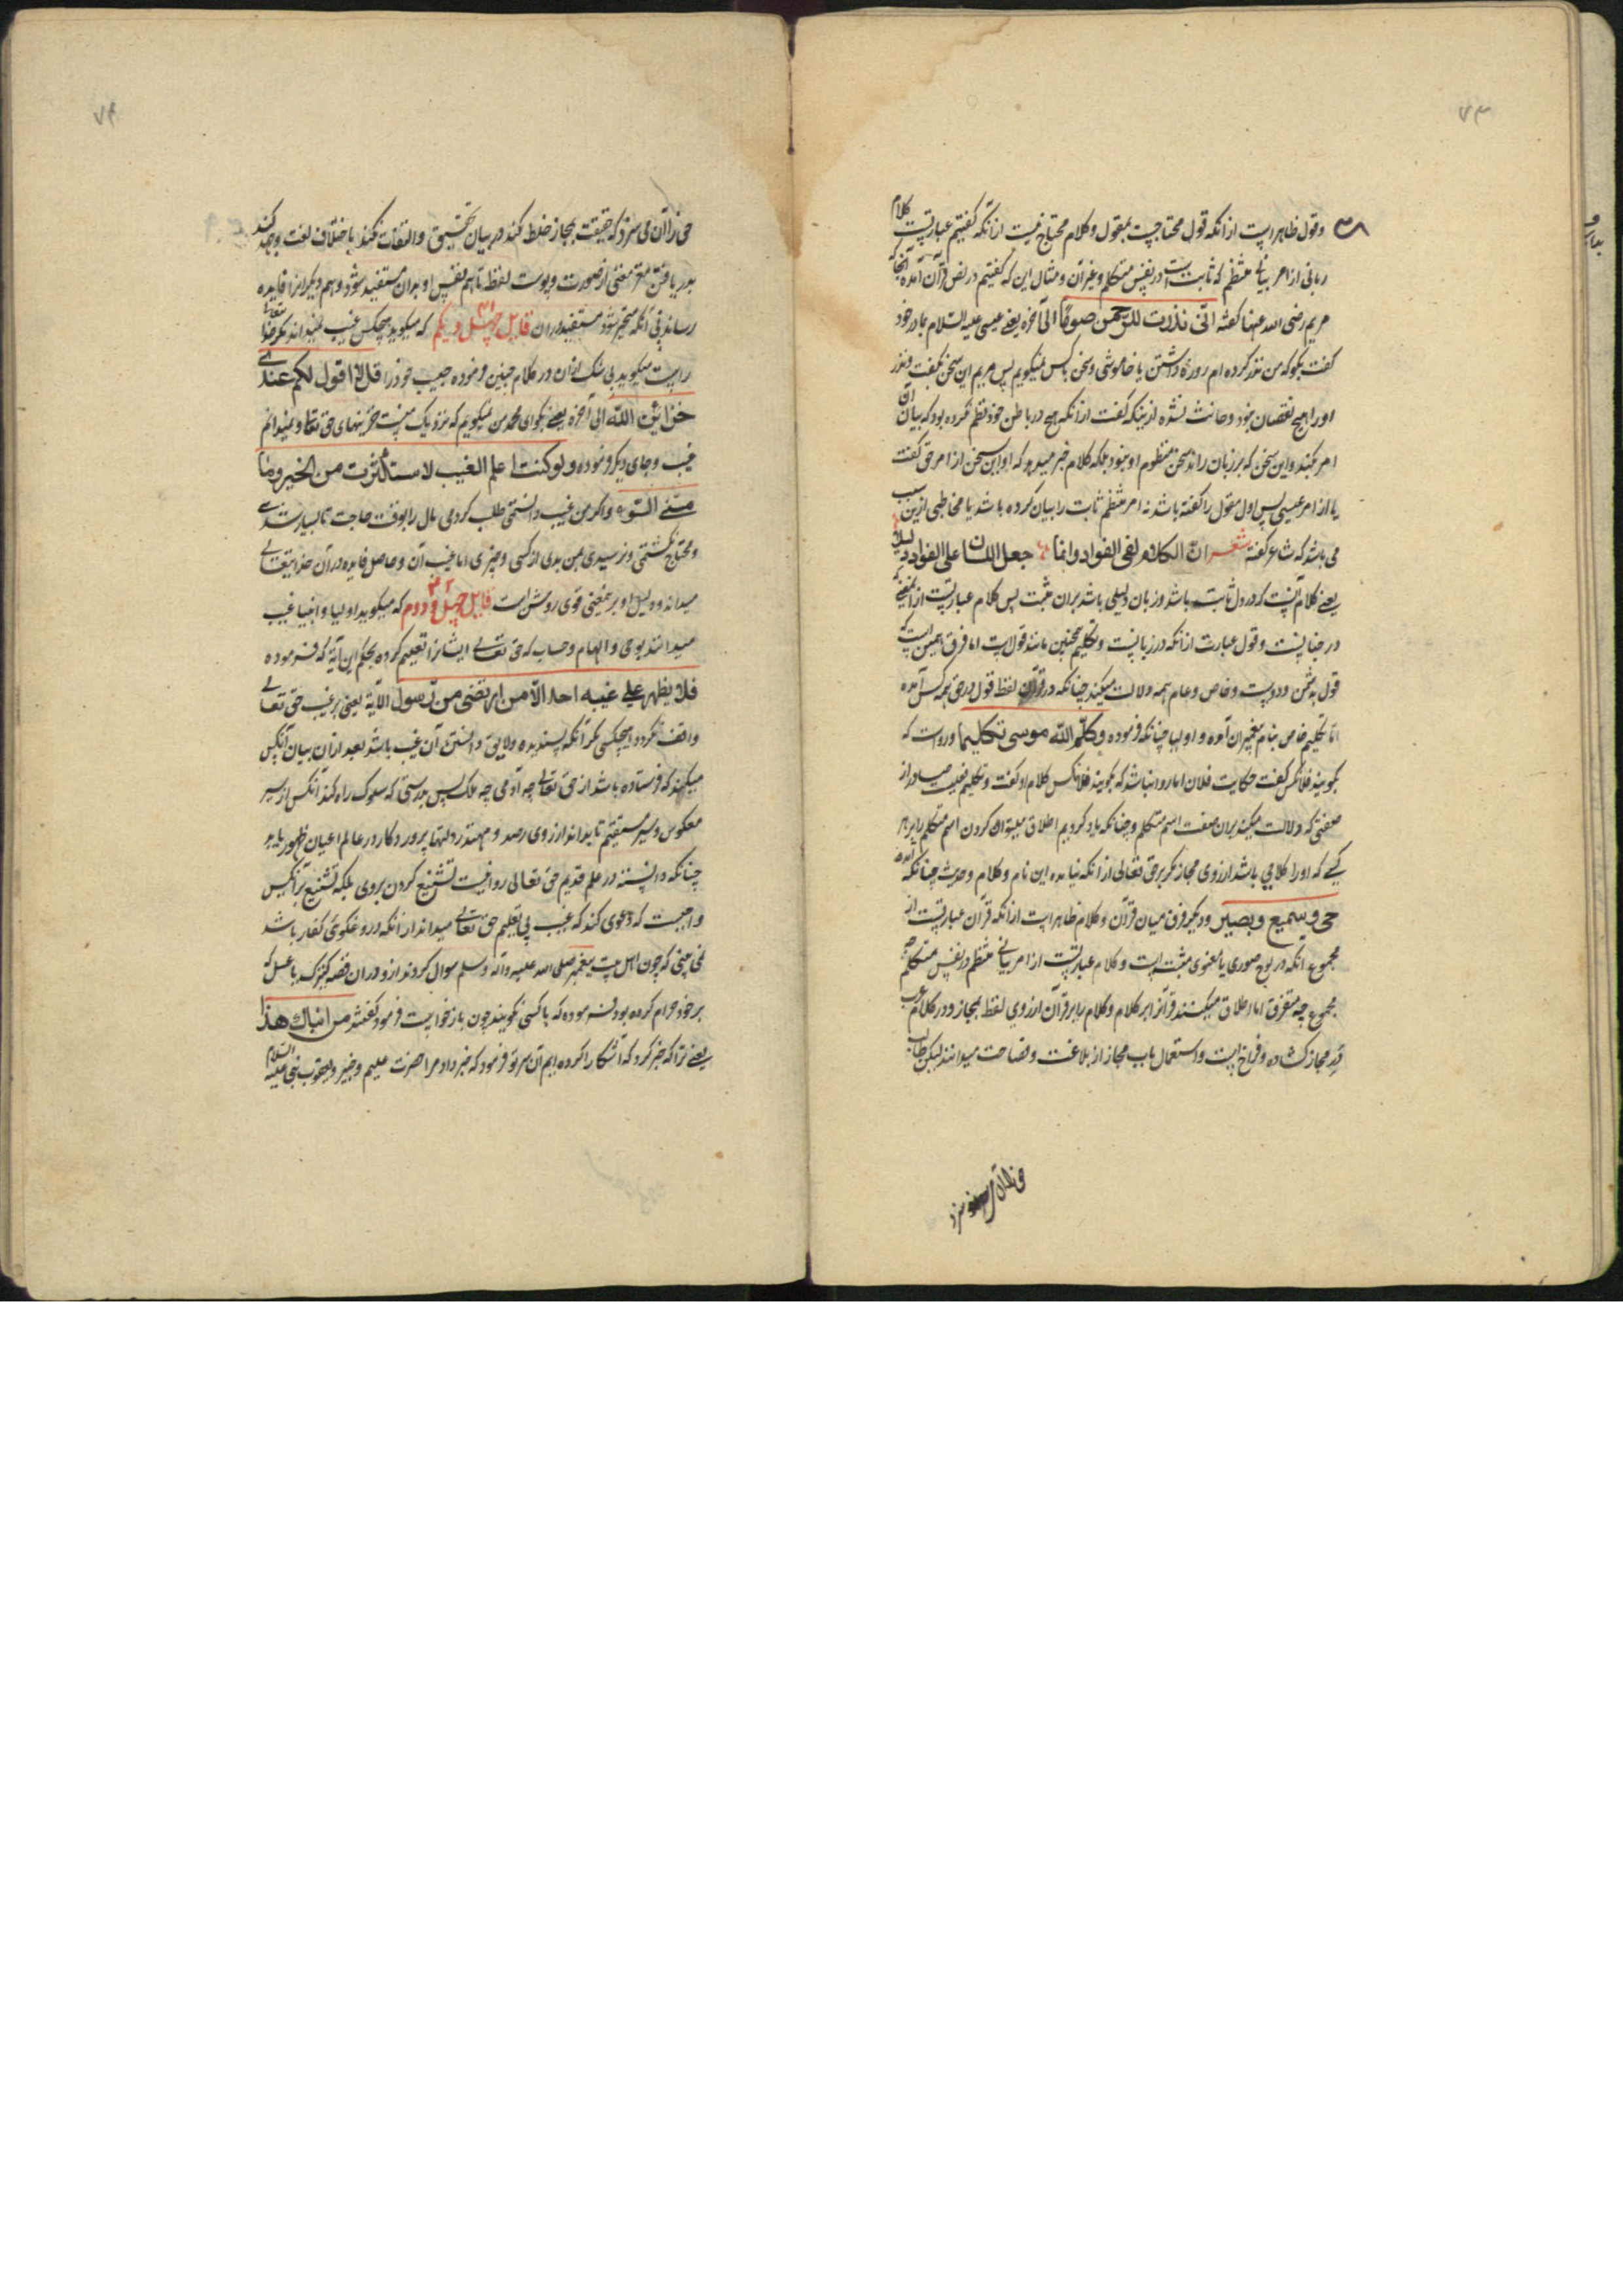 ۷۳
۳۸ وقول ظاهراست از انکه قول محتاجست بمقول وکلام محتاج نیست از انکه کفتیم عبارتست کلام
ربانی از امر بیانی منتظم که ثابت است در نفس متکلم وغیر آن ومثال این که کفتیم در نص قرآن آمده آنجا که
مریم رضی الله عنها کفته انی نذرت للرحمن صوما الی آخره یعنی عیسی علیه السلام بمادر خود
کفت بکو که من نذر کرده ام روزه داشتن یا خاموشی وسخن باکس نمیکویم پس مریم این سخن بکفت ونذر
اورا هیچ نقصان نبود وحانث نشد از ینکه کفت از انکه هیچ در باطن خود نظم نکرده بود که بیان آن
امر بکند واین سخن که بر زبان راند سخن منظوم او نبود بلکه کلام خبر میدهد که او این سخن از امر حق کفت
یا از امر عیسی پس اول مقول را کفته باشد نه امر منتظم ثابت را بیان کرده باشد یا مخاطبی ازین سبب
می باشد که شاعر کفته شعر ان الکلام لفی الفواد وانما جعل اللسان علی الفواد دلیلا
یعنی کلام آنست که در دل ثابت باشد وزبان دلیلی باشد بران مثبت پس کلام عبارتست از معنی که
در جنانست وقول عبارت از انکه در زبانست وتکلیم همچنین مانند قولست اما فرق همین است که
قول بدشمن ودوست وخاص وعام همه دلالت میکند چنانکه در قرآن لفظ قول در حق همه کس آمده
اما تکلیم خاص بنام پیغمبران آمده و اولیا چنانکه فرموده وکلم الله موسی تکلیما ورواست که
بکویند فلانکس کفت حکایت فلان اما روا نباشد که بکویند فلانکس کلام او کفت وتکلیم فعلیست صادر از
صفتی که دلالت میکند بران صفت اسم متکلم وچنانکه یاد کردیم اطلاق میتوان کردن اسم متکلم را بر هر
کسی که اورا کلامی باشد از روی مجاز مکر بر حق تعالی از انکه نیامده این نام وکلام وحدیث چنانکه آمده
حی وسمیع وبصیر ودیکر فرق میان قرآن وکلام ظاهراست از انکه قرآن عبارتست از
مجموع انکه در لوح صوری یا معنوی مثبت است وکلام عبارتست از امر بیانی منتظم در نفس متکلم چه
مجموع چه متفرق اما اطلاق میکنند قرآن را بر کلام وکلام را بر قرآن از روی لفظ بمجاز ودر کلام عرب
در مجاز کشاده وفراخ است واستعمال باب مجاز از بلاغت وفصاحت میدانند لیکن طالب
۷۴
حق را آن نمی سزد که حقیقت بمجاز خلط کند در بیان تحقیق والتفات نکند باختلاف لغت وجهد کند
بدریافتن مغز معنی از صورت وپوست لفظ تا هم نفس او بدان مستفید شود وهم دیکرانرا فایده
رساند بی آنکه متحیر شود مستفید دران قایل چهل ویکم ۴۱ که میکوید هیچکس غیب نمیداند مکر خدا تعالی
راست میکوید بی شک از آن در کلام مبین فرموده حبیب خود را قل لا اقول لکم عندی
خزائن الله الی آخره یعنی بکو ای محمد من نمیکویم که نزدیک منست خزینهای حق تعالی ونمیدانم
غیب وجای دیکر فرموده ولو کنت اعلم الغیب لاستکثرت من الخیر وما
مسنی السوء واکر من غیب دانستمی طلب کردمی مال را بوقت حاجت تا بسیار شدی
ومحتاج نکشتمی ونرسیدی بمن بدی از کسی وچیزی اما غیب آن وحاصل فایده در آن خدایتعالی
میداند ودلیل او بر این معنی قوی روشن است قایل چهل ودوم ۴۲ که میکوید اولیا وانبیا غیب
میدانند بوحی والهام وحساب که حق تعالی ایشانرا تعلیم کرده بحکم این آیة که فرموده
فلا یظهر علی غیبه احدا الا من ارتضی من رسول الآیة یعنی بر غیب حق تعالی
واقف نکردد هیچکسی مکر آنکه پسندیده ولایق دانستن آن غیب باشد بعد ازان بیان آنکس
میکند که فرستاده باشد از حق تعالی چه آدمی چه ملک پس بدرستی که سلوک راه کند آنکس از سیر
معکوس وسیر مستقیم تا بداند از روی رصد و دولتها پرورد کار در عالم اعیان ظهور یابد
چنانکه دانسته در علم قدیم حق تعالی روا نیست تشنیع کردن بروی بلکه تشنیع بر آنکس
واجبست که دعوی کند که غیب بی تعلیم حق تعالی میداند از آنکه دروغکوی کفار باشد
نمی بینی که چون اهل بیت پیغمبر صلی الله علیه وآله وسلم سوال کردند ازو دران قصه کنیزک یا عسل که
بر خود حرام کرده بود فرموده که با کسی نکویند چون بازخواست فرمود کفتند من انباک هذا
یعنی ترا که خبر کرد که آشکارا کرده ایم آن سر تو فرمود که خبر داد مرا حضرت علیم وخبیر ویعقوب نبی علیه السلام